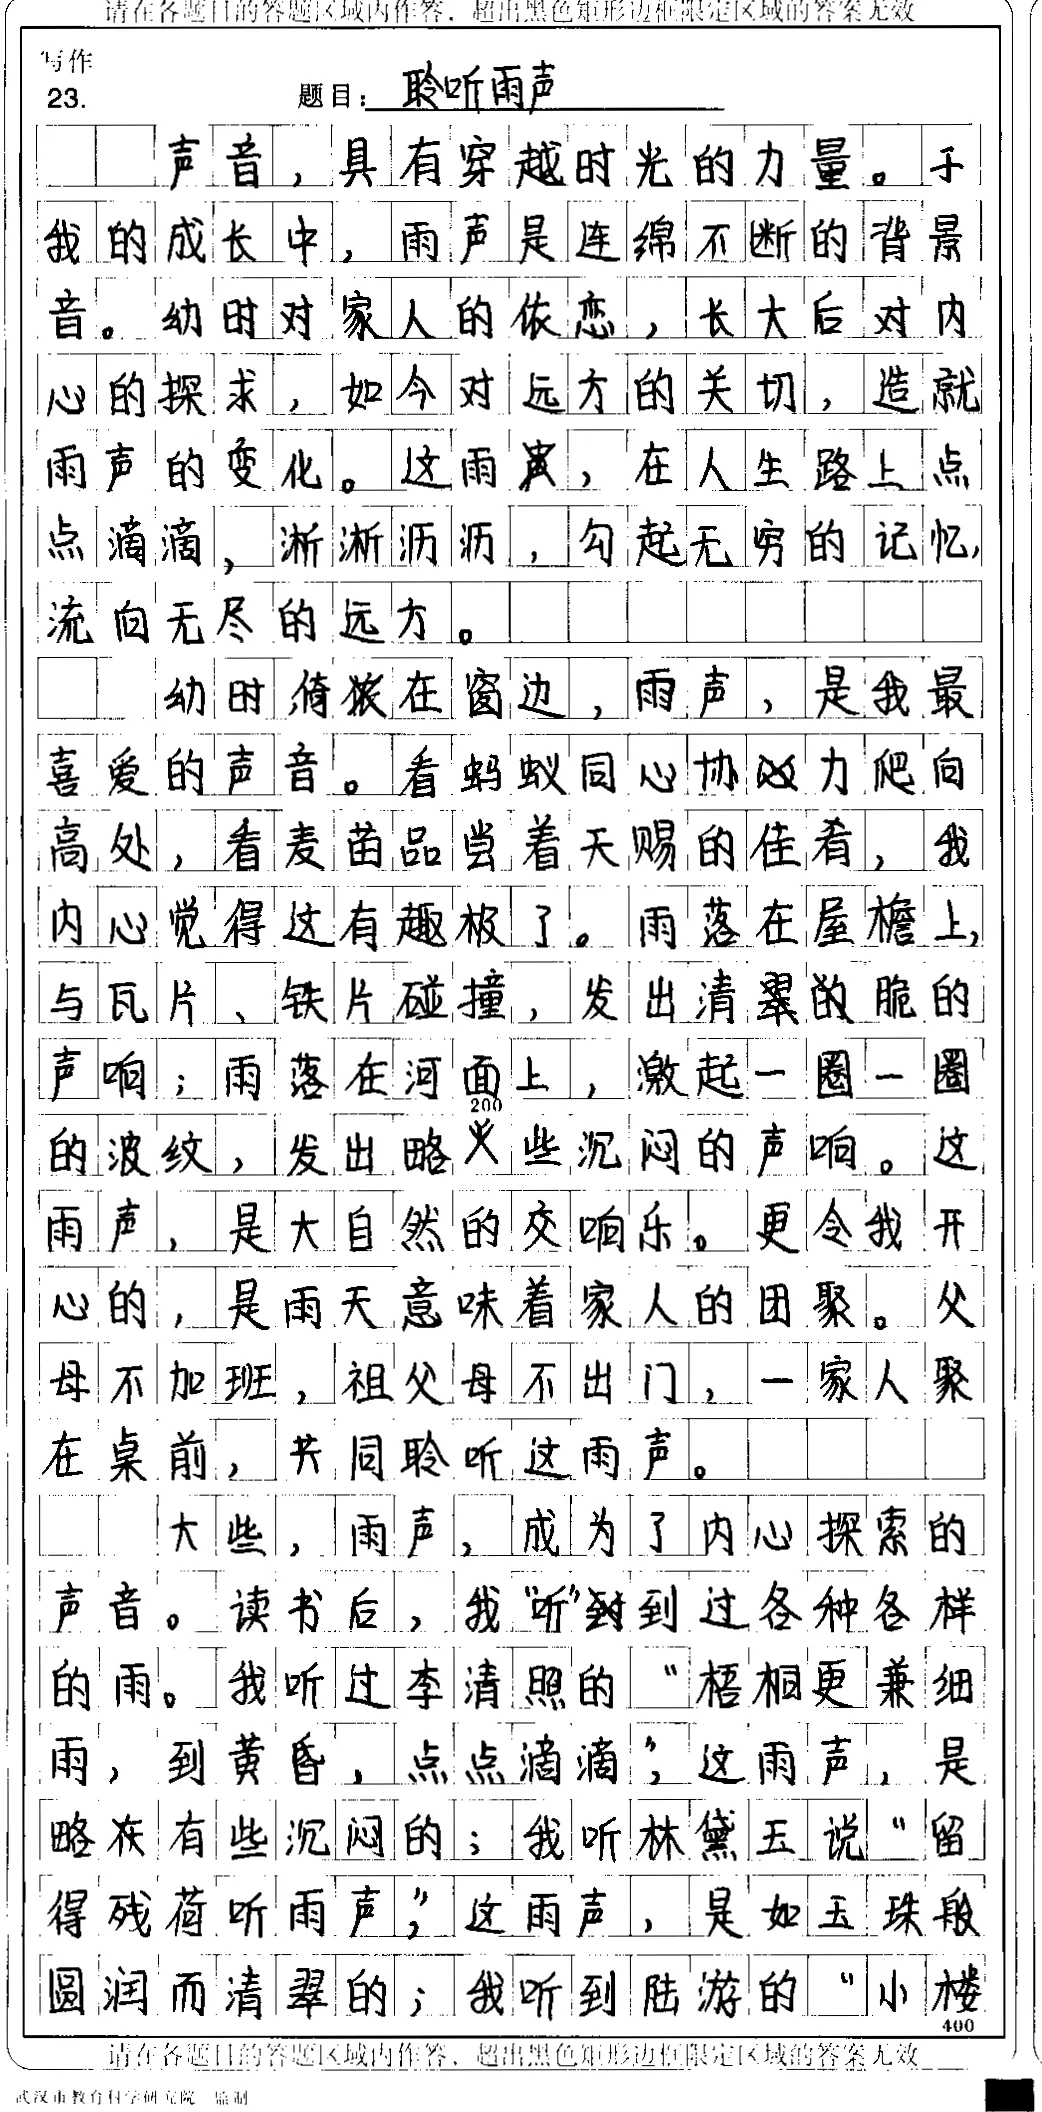 请在各题目的答题区域内作答，超出黑色矩形边框限定区域的答案无效
写作
23.
题目：聆听雨声
声音，具有穿越时光的力量。于
我的成长中，雨声是连绵不断的背景
音。幼时对家人的依恋，长大后对内
心的探求，如今对远方的关切，造就
雨声的变化。这雨声，在人生路上点
点滴滴，淅淅沥沥，勾起无穷的记忆，
流向无尽的远方。
幼时，倚在窗边，雨声，是我最
喜爱的声音。看蚂蚁同心协力爬向
高处，看麦苗品尝着天赐的佳肴，我
内心觉得这有趣极了。雨落在屋檐上，
与瓦片、铁片碰撞，发出清翠的脆的
声响；雨落在河面上，激起一圈一圈
200
的波纹，发出略些沉闷的声响。这
雨声，是大自然的交响乐。更令我开
心的，是雨天意味着家人的团聚。父
母不加班，祖父母不出门，一家人聚
在桌前，共同聆听这雨声。
大些，雨声，成为了内心探索的
声音。读书后，我“听”到过各种各样
的雨。我听过李清照的“梧桐更兼细
雨，到黄昏，点点滴滴”，这雨声，是
略有些沉闷的；我听林黛玉说“留
得残荷听雨声”，这雨声，是如玉珠般
圆润而清翠的；我听到陆游的“小楼
400
请在各题目的答题区域内作答，超出黑色矩形边框限定区域的答案无效
武汉市教育科学研究院 监制